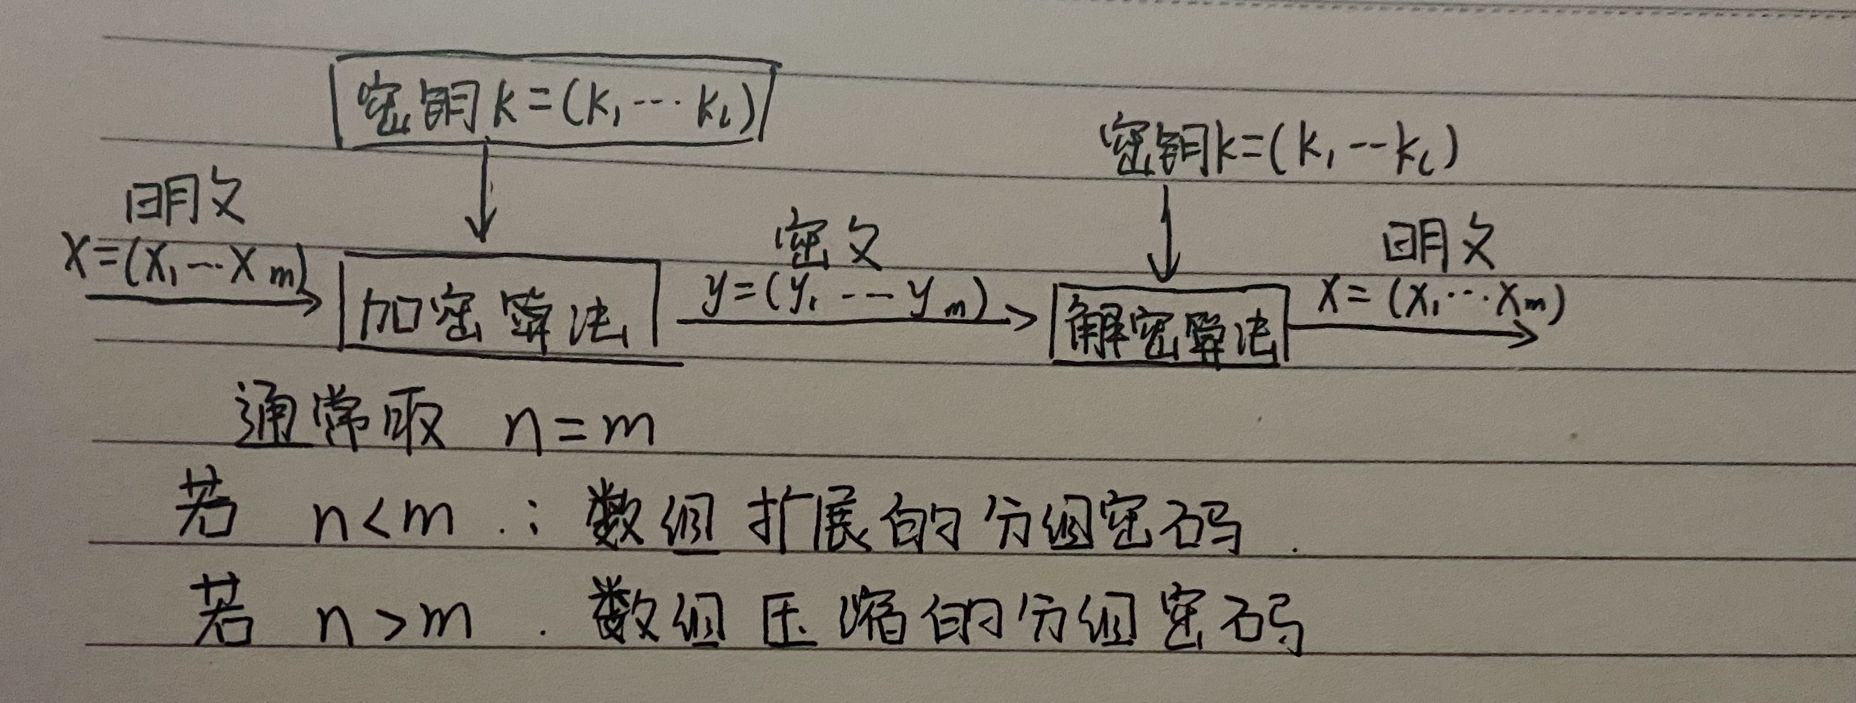 密钥k=(k₁…kₗ)
密钥k=(k₁--kₗ)
明文
x=(x₁…xₘ)
加密算法
密文
y=(y₁---yₘ)
解密算法
明文
x=(x₁…xₘ)
通常取 n=m
若 n<m : 数组扩展的分组密码.
若 n>m . 数组压缩的分组密码